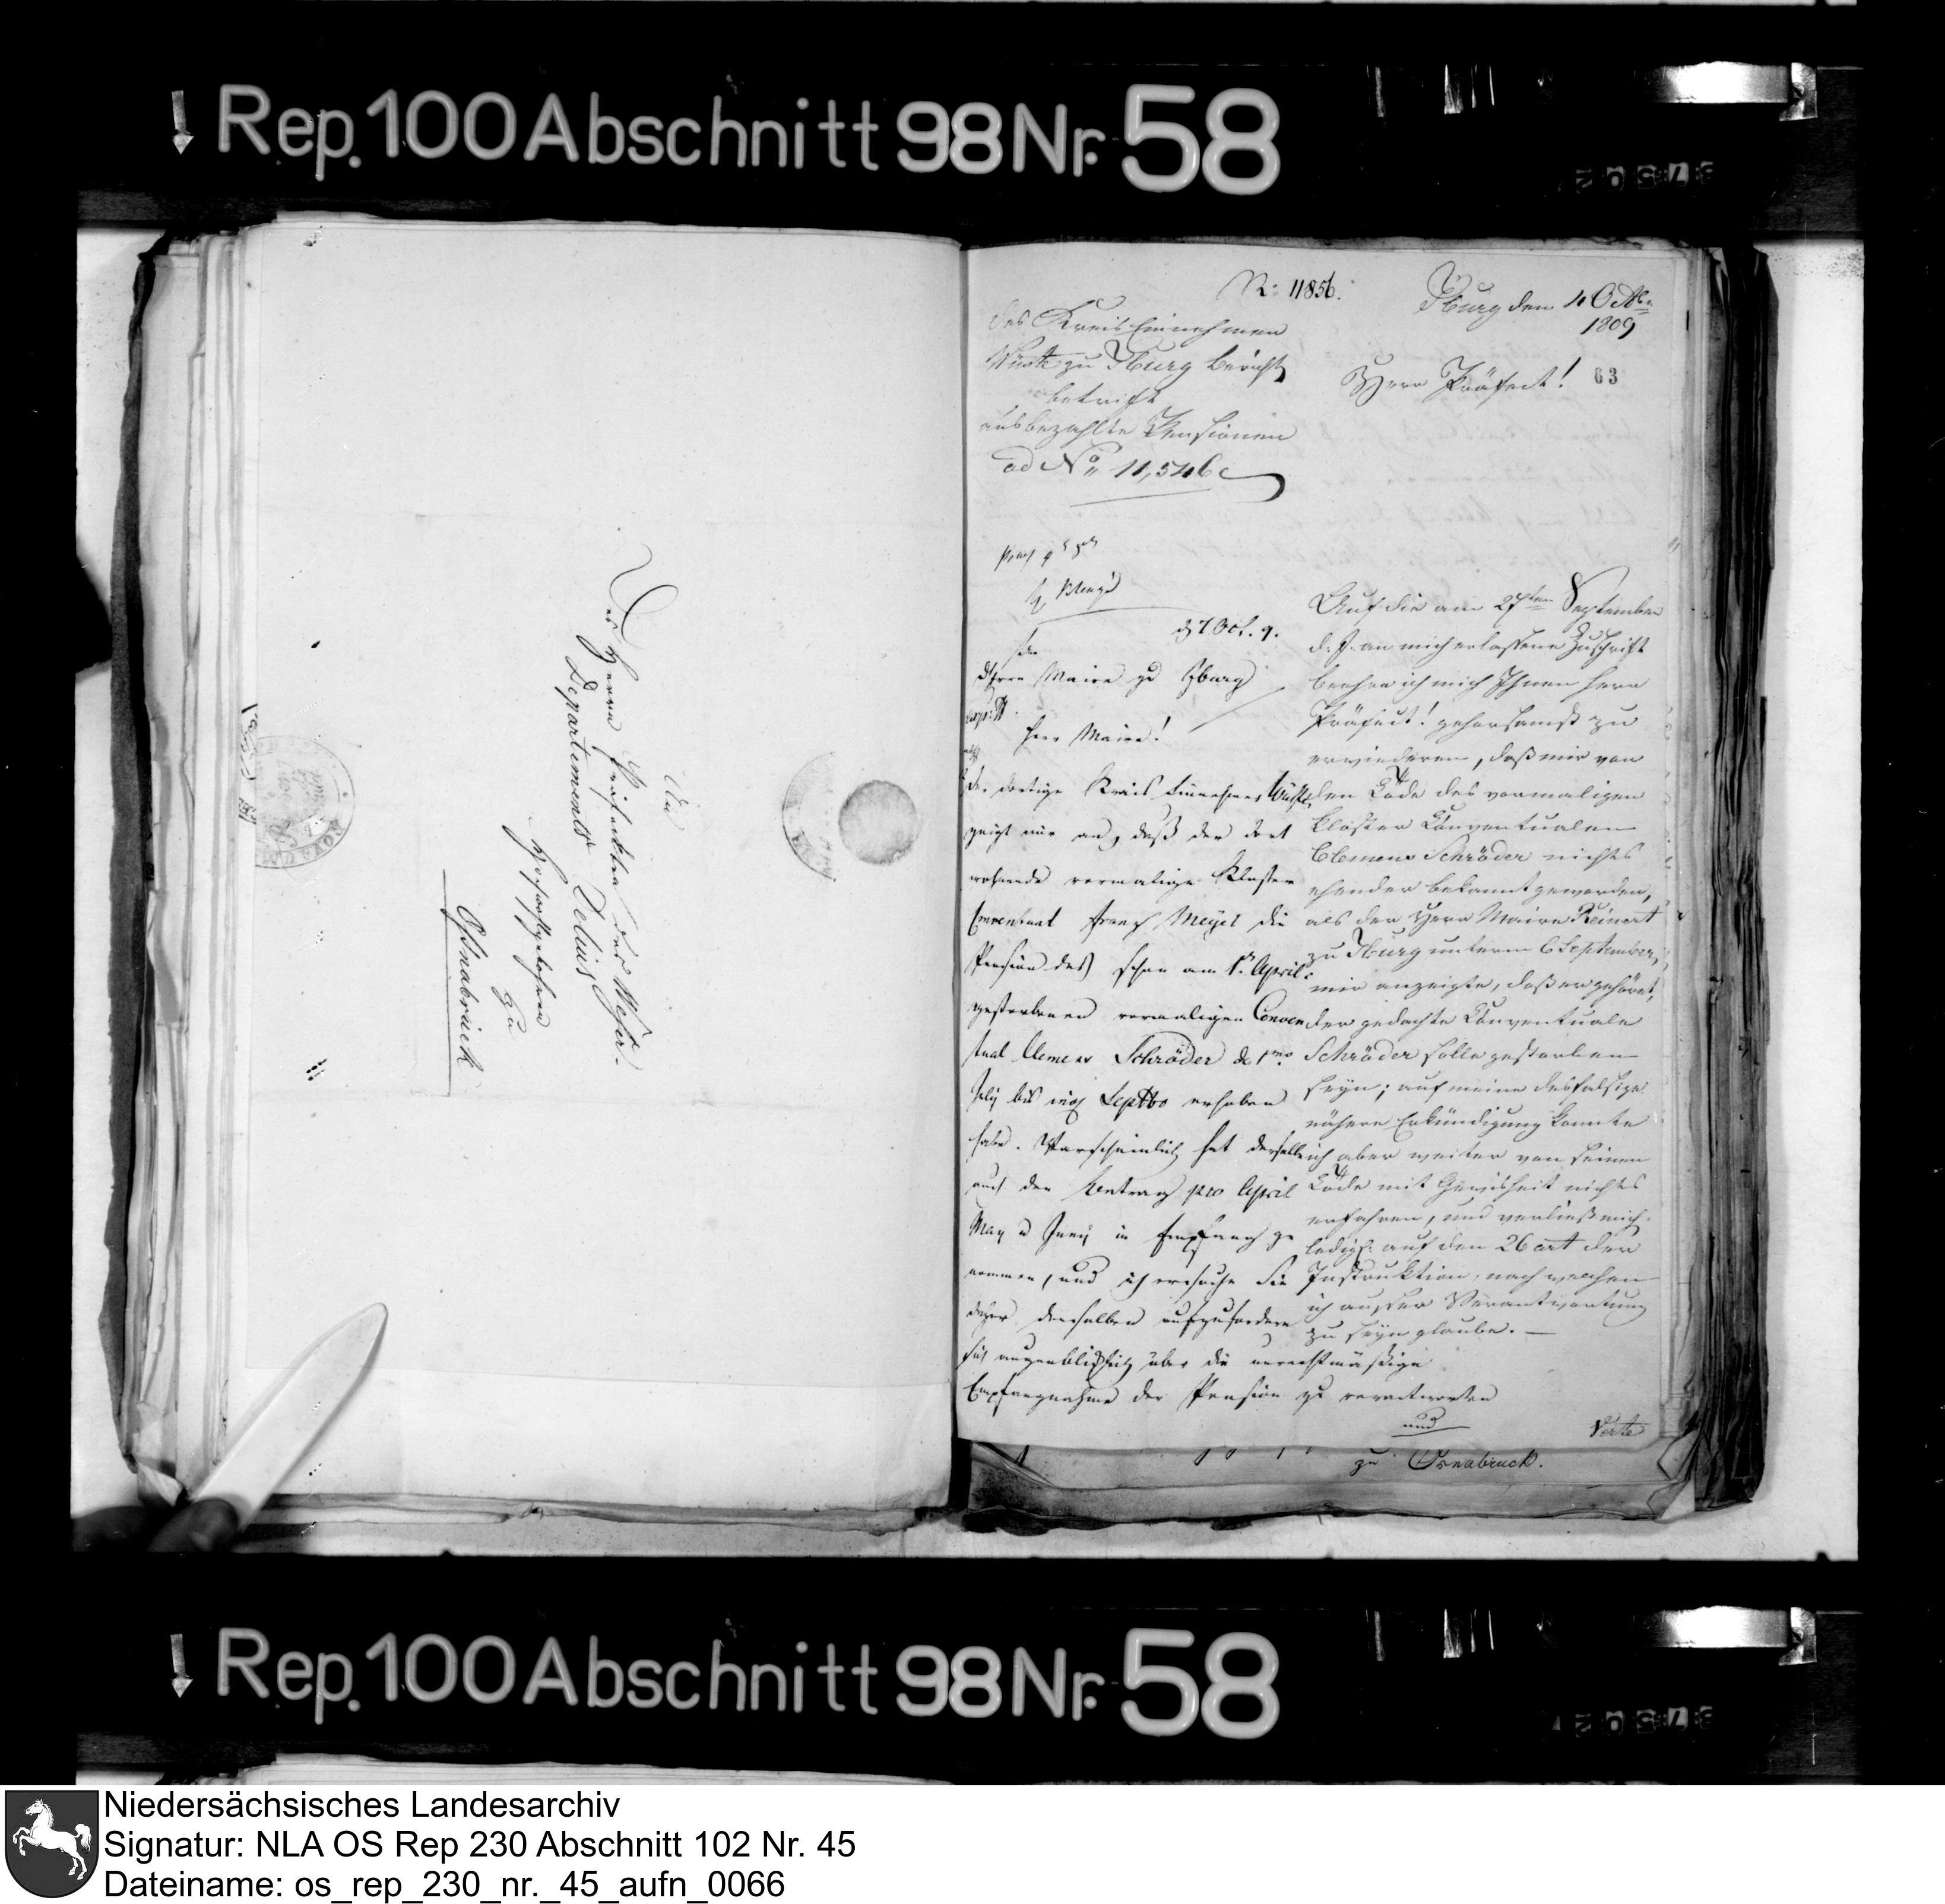 Rep. 100 Abschnitt 98 Nr. 58
An
Des Herrn Präfekten des Weser-
Departements Delius
Hochwohlgebohren
zu
Osnabrück
N: 11856.
Iburg den 4 Octbr
1809
des Kreis Einnehmers
Wüste zu Iburg Bericht
betrift
ausbezahlte Pensionen
ad No 11,546
Herr Präfect!
63
d 7 Oct. 9.
Herrn Maire zu Iburg
Herr Maire!
Der dortige Kreis Einnehmer Wüste
zeigt mir an, daß der dort
wohnende vormalige Kloster
Conventual Franz Meyer die
Pension des schon am 1n April
gestorbenen vormaligen Conven
tual Clemens Schröder de 1mo
July bis Septbo erhoben
habe. Warscheinlich hat derselbe
auch den Betrag pro April
May u Juny in Empfang ge
nommen, und ich ersuche Sie
daher denselben aufzufordern
sich augenblicklich über die unrechtmäßige
Empfangnahme der Pension zu verantworten
und
Auf die am 27ten September
d. J. an mich erlassene Zuschrift
beehre ich mich Ihnen Herr
Präfect! gehorsamst zu
erwiederen, daß mir von
den Tode des vormaligen
Kloster Conventualen
Clemens Schröder nichts
ehender bekannt geworden,
als der Herr Maire Reinert
zu Iburg unterm 6 September
mir anzeigte, daß er gehöret,
der gedachte Conventuale
Schröder solle gestorben
seyn; auf meine desfalsige
nähere Erkündigung konnte
ich aber weiter von seinen
Tode mit Gewisheit nichts
erfahren, und verließ mich
ledigl. auf den 26 art der
Instruktion, nach welchen
ich ausser Verantwortung
zu seyn glaube. —
Verte
zu Osnabruck.
Rep. 100 Abschnitt 98 Nr. 58
Niedersächsisches Landesarchiv
Signatur: NLA OS Rep 230 Abschnitt 102 Nr. 45
Dateiname: os_rep_230_nr._45_aufn_0066